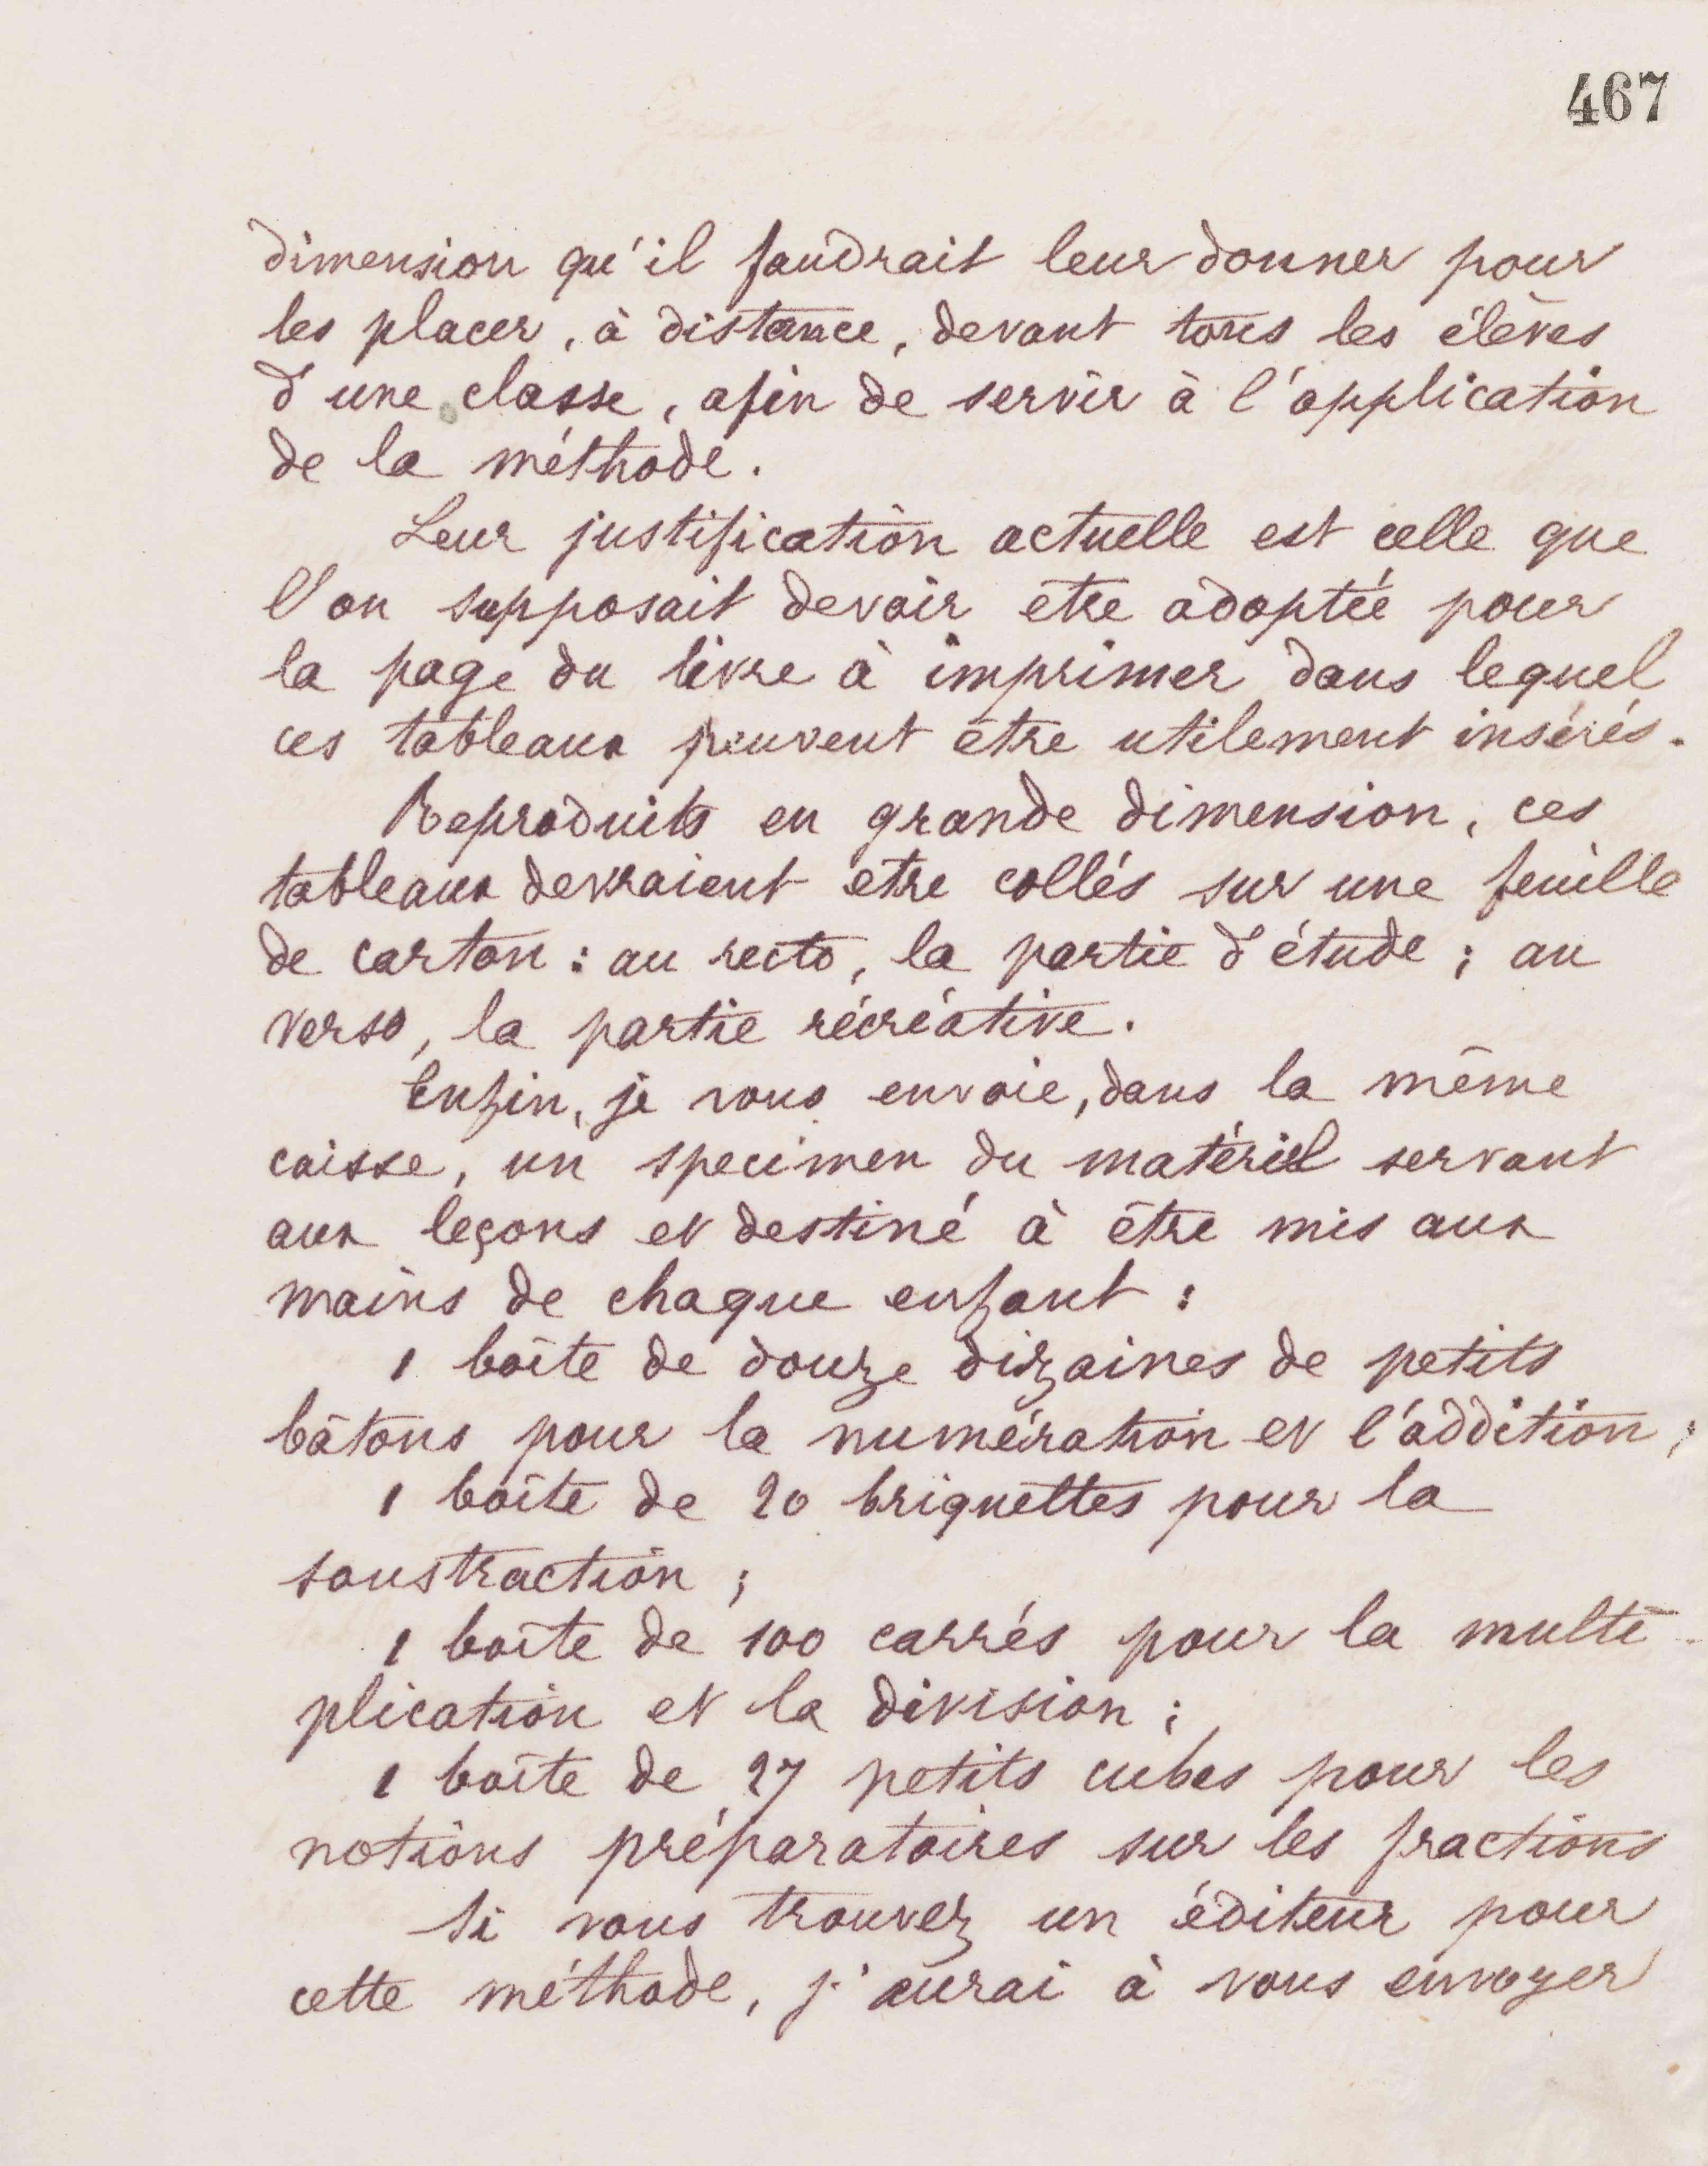 467
dimension qu'il faudrait leur donner pour
les placer, à distance, devant tous les élèves
d'une classe, afin de servir à l'application
de la méthode.
Leur justification actuelle est celle que
l'on supposait devoir etre adoptée pour
la page du livre à imprimer dans lequel
ces tableaux peuvent être utilement insérés.
Reproduits en grande dimension, ces
tableaux devraient etre collés sur une feuille
de carton : au recto, la partie d'étude ; au
verso, la partie récréative.
Enfin, je vous envoie, dans la même
caisse, un specimen du matériel servant
aux leçons et destiné à être mis aux
mains de chaque enfant :
1 boîte de douze dizaines de petits
bâtons pour la numération et l'addition ;
1 boîte de 20 briquettes pour la
soustraction ;
1 boîte de 100 carrés pour la multi-
plication et la division ;
1 boîte de 27 petits cubes pour les
notions préparatoires sur les fractions
Si vous trouvez un éditeur pour
cette méthode, j'aurai à vous envoyer